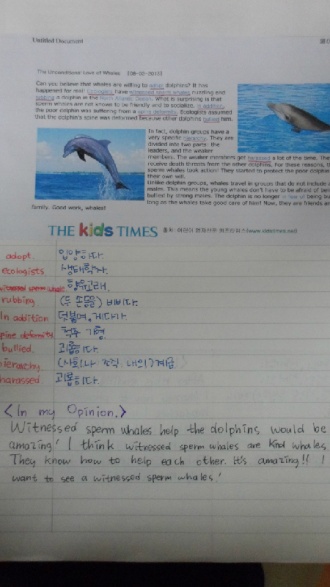 Untitled Document
The Unconditional Love of Whales [08-02-2013]
Can you believe that whales are willing to adopt dolphins? It has
happened for real! Ecologists have witnessed sperm whales nuzzling and
rubbing a dolphin in the What is surprising is that
sperm whales are not known to be friendly and to socialize. In addition,
the poor dolphin was suffering from a spine deformity. Ecologists assumed
that the dolphin's spine was deformed because other dolphins bullied him.
In fact, dolphin groups have a
very specific hierarchy. They are
divided into two parts: the
leaders, and the weaker
members. The weaker members get harassed a lot of the time. They
receive death threats from the other dolphins. For these reasons, the
sperm whales took action! They started to protect the poor dolphin
their own will.
Unlike dolphin groups, whales travel in groups that do not include
males. This means the young whales don't have to be afraid of
behind by strong males. The dolphin is no longer in fear of being
long as the whales take good care of him! Now, they are friends and
family. Good work, whales!
THE kids TIMES
adopt. 입양하다.
ecologists 생태학자.
witnessed sperm whale 향유고래.
rubbing (두 손등을) 비비다.
In addition 덧붙여, 게다가
spine deformity 척추 기형
bullied. 괴롭히다.
hierarchy (사회나 조직 내의) 계급
harassed 괴롭히다.
<In my Opinion.>
Witnessed sperm whales help the dolphins would be
amazing! I think witnessed sperm whales are kind whales
They know how to help each other. It's amazing!! I
want to see a witnessed sperm whales!